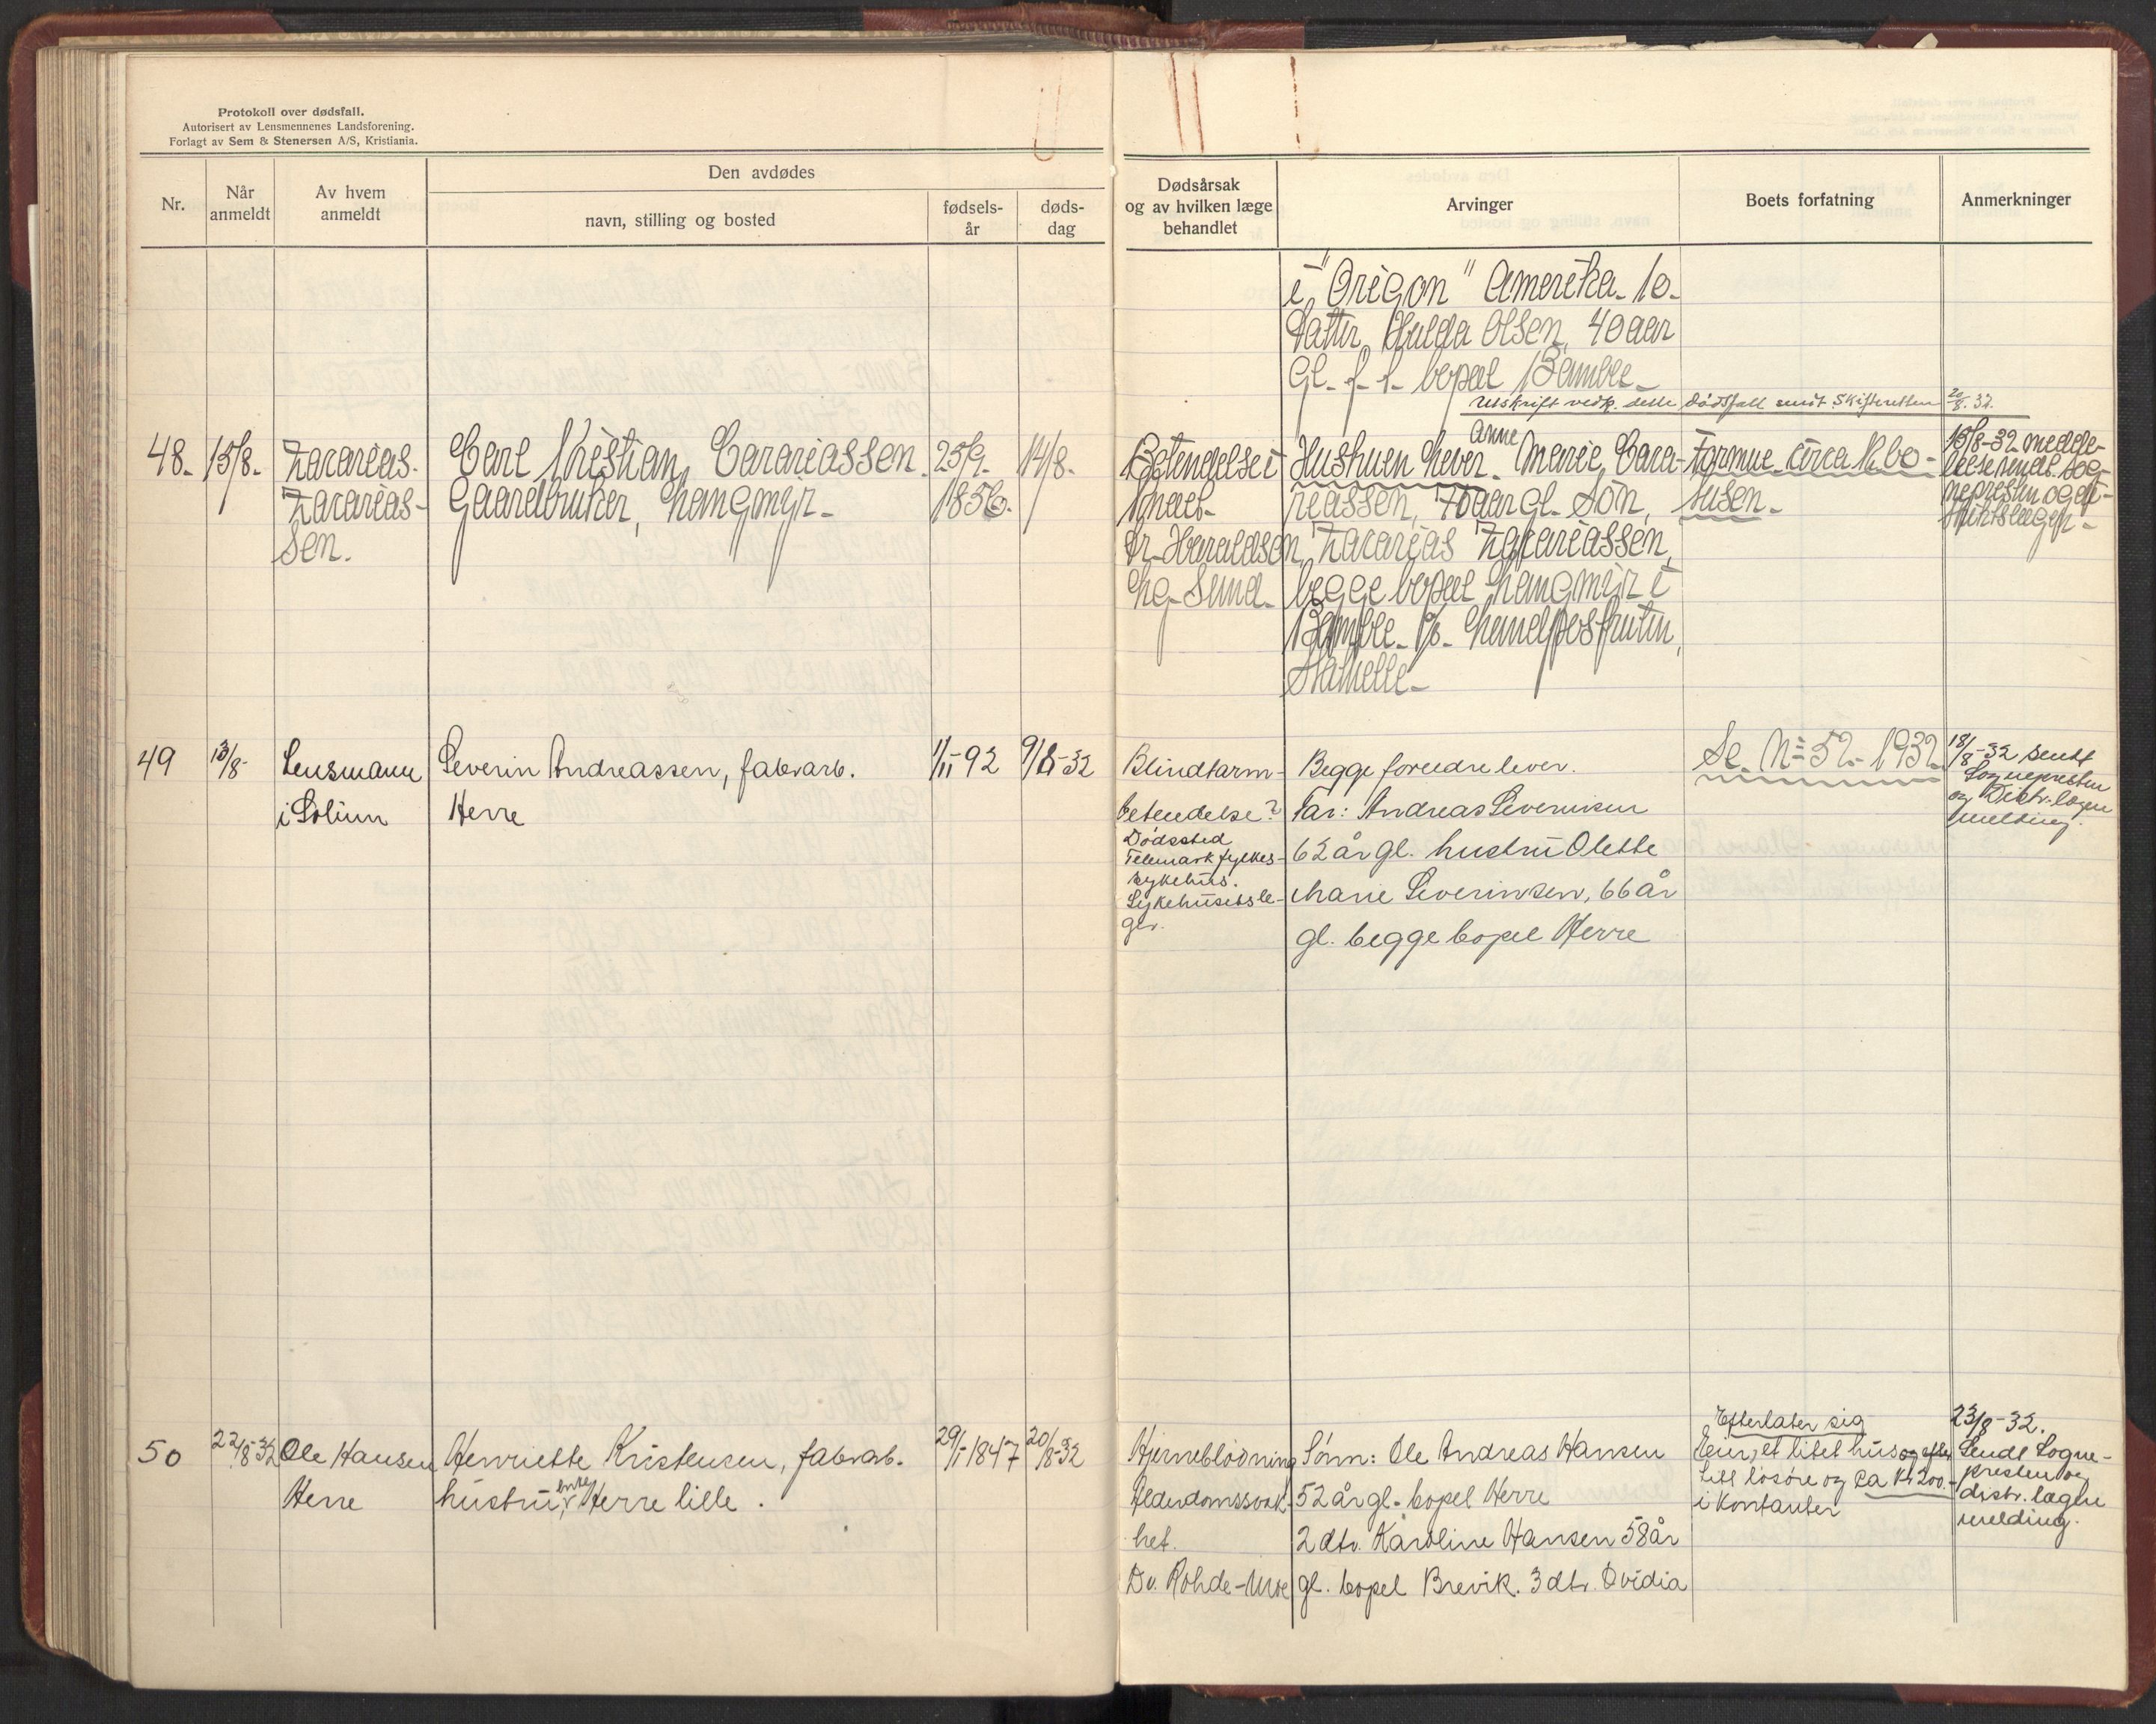 Protokoll over dødsfall.
Autorisert av Lensmennenes Landsforening.
Forlagt av Sem & Stenersen A/S, Kristiania.
Nr.
Når
anmeldt
Av hvem
anmeldt
Den avdødes
navn, stilling og bosted
fødsels-
år
døds-
dag
Dødsårsak
og av hvilken læge
behandlet
Arvinger
Boets forfatning
Anmerkninger
i "Origon" Amerika. 10.
Datter, Hulda Olsen, 40 aar
Gl. f. f. bopæl Bamble
Utskrift vedk. dette dødsfall sendt Skifteretten 20/8.32.
48. 15/8.
Zacarias
Zacarias-
sen.
Carl Kristian, Cacariassen.
Gaardbruker, Langmyr
25/9.
1856.
14/8.
Betendelse i
Dr. Haraldsen
Lg. Sund.
Hustruen Lever. Anne Marie, Caca-
riassen, 70 aar gl. Søn,
Zacarias Zacariassen,
begge bopæl Langmyr i
Bamble. p/o. Landpostruten,
Formue circa K. 60-
tusen.
15/8-32 meddel-
else sendt. Sog-
nepresten og di-
striktslægen
49
13/8
Lensmann
i Solum
Severin Andreassen, fabrarb.
Herre
1/11-92
9/8-32
Blindtarm-
betendelse?
Dödssted
Telemark fylkes-
sykehus.
Sykehusetsle-
ger.
Begge foreldre lever.
Far: Andreas Severinsen
62 år gl. hustru Olette
Marie Severinsen, 66 år
gl. begge bopel Herre
Se. No 52-1932
18/8-32 sendt
Sognepresten
og Distr. lægen
melding.
50
22/8-32
Ole Hansen
Herre
Henriette Kristensen, fabrarb.
hustru, enke, Herre lille.
29/1-1847
20/8-32
Hjerneblödning
Alderdomssvak-
het.
Dr. Rohde-Moe
Sönn: Ole Andreas Hansen
52 år gl. bopel Herre
2 dtr. Karoline Hansen 58 år
gl. bopel Brevik. 3 dtr. Ovidia
Efterlater sig
Eier, et litet hus og efter
litt lösöre og ca Kr 200.-
i kontanter
23/8-32.
Sendt Sogne-
presten og
distr. lægen
melding.